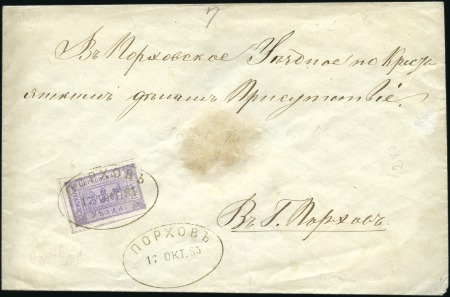 Въ Порховское Уѣздное по Крестьянскимъ дѣламъ Присутствіе.
ПОРХОВЪ
УѢЗДА
Въ Г. Порховъ.
ПОРХОВЪ
17 ОКТ. 83